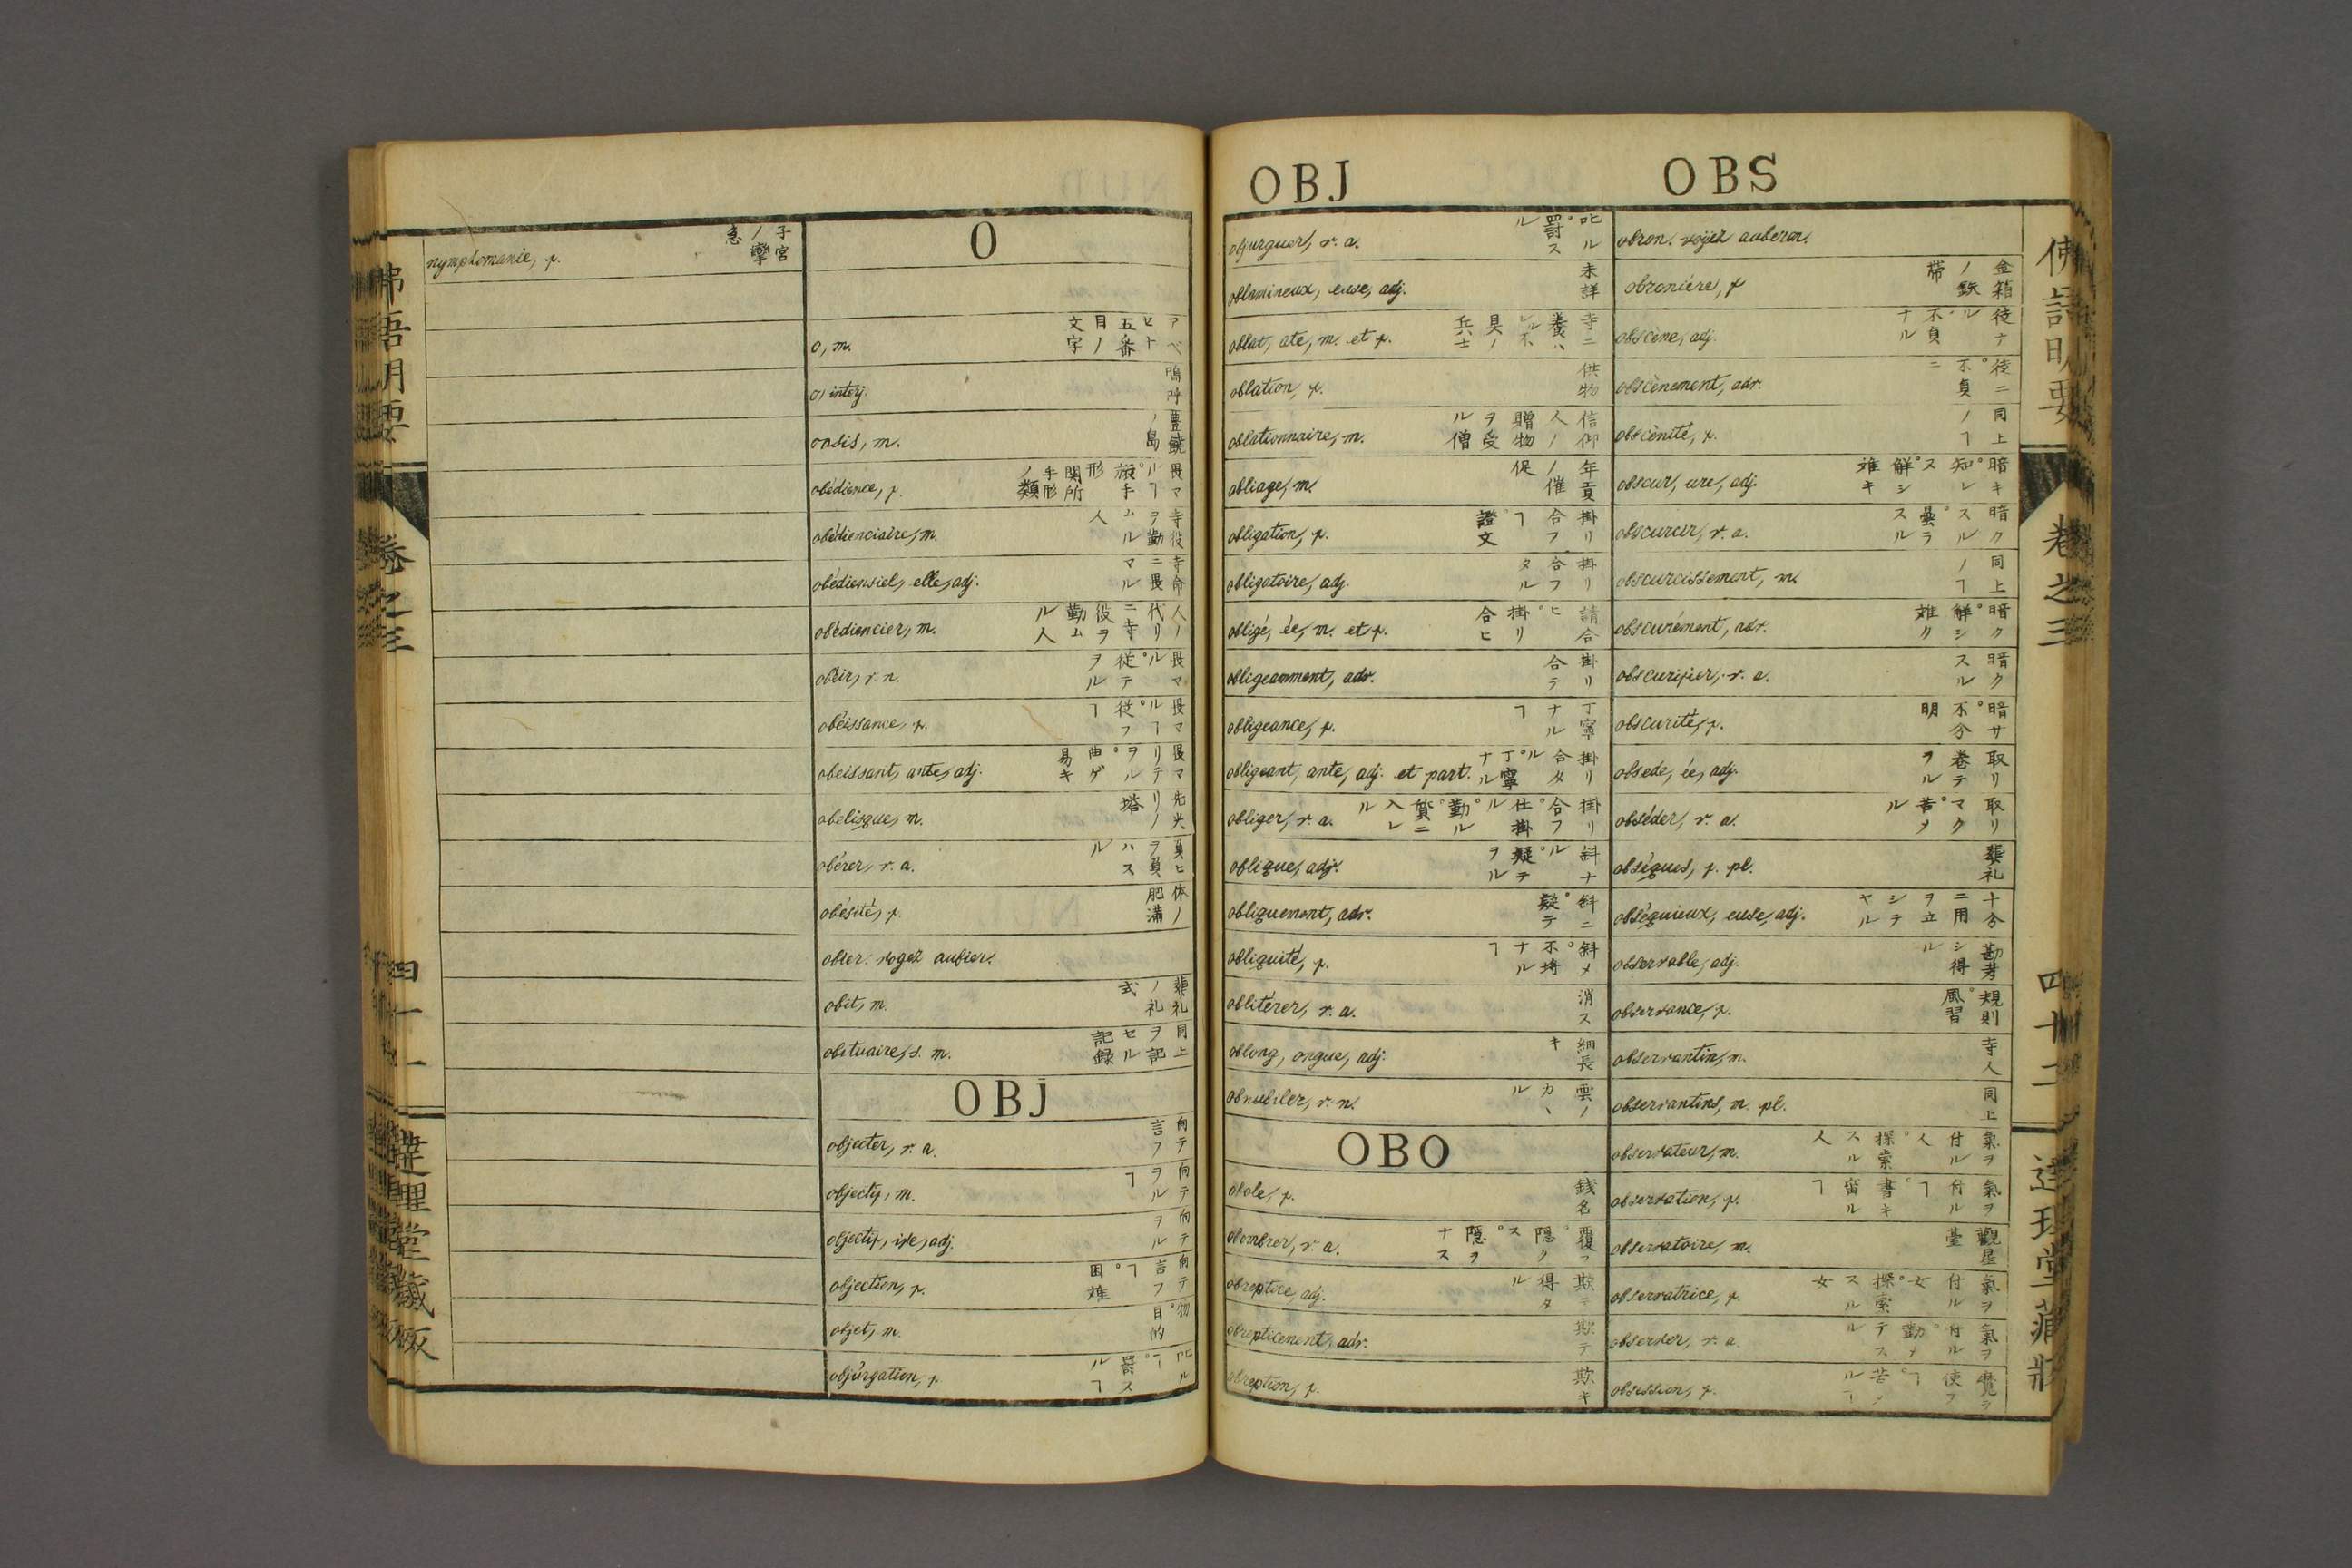 nymphomanie, f. 子宮ノ攣急
O
o, m. アベセト五番目ノ文字
o, interj. 嗚呼
oasis, m. 豊饒ノ島
obédience, f. 畏マルヿ。旅手形 関所手形ノ類
obédienciaire, m. 寺役ヲ勤ムル人
obédienciel, elle, adj. 寺命ニ畏マル
obédiencier, m. 人ノ代リニ寺役ヲ勤ムル人
obéir, v. n. 畏マル。従テヲル
obéissance, f. 畏マルヿ。従フヿ
obéissant, ante, adj. 畏マリテヲル。曲ゲ易キ
obelisque, m. 先尖リノ塔
obérer, v. a. 負ヒヲ負ハスル
obésité, f. 体ノ肥満
obier. voyez aubier.
obit, m. 葬礼ノ礼式
obituaire, s. m. 同上ヲ記セル記録
OBJ
objecter, v. a. 向テ言フ
objectif, m. 向テヲルヿ
objectif, ive, adj. 向テヲル
objection, f. 向テ言フヿ。困難
objet, m. 物。目的
objurgation, f. 叱ルヿ。罰スルヿ
OBJ
OBS
objurguer, v. a. 叱ル。罰スル
oblamineux, euse, adj. 未詳
oblat, ate, m. et f. 寺ニ養ハレル不具ノ兵士
oblation, f. 供物
oblationnaire, m. 信仰人ノ贈物ヲ受ル僧
obliage, m. 年貢ノ催促
obligation, f. 掛リ合フヿ。證文
obligatoire, adj. 掛リ合フタル
obligé, ée, m. et f. 請合ヒ。掛リ合ヒ
obligeamment, adv. 掛リ合テ
obligeance, f. 丁寧ナルヿ
obligeant, ante, adj. et part. 掛リ合タル。丁寧ナル
obliger, v. a. 掛リ合フ。仕掛ル。勤ル。質ニ入レル
oblique, adj. 斜ナル。疑テヲル
obliquement, adv. 斜ニ。疑テ
obliquité, f. 斜メ。不埒ナルヿ
oblitérer, v. a. 消ス
oblong, ongue, adj. 細長キ
obnubiler, v. n. 雲ノカヽル
OBO
obole, f. 銭名
obombrer, v. a. 覆フ。隠クス。隠ヲナス
obreptice, adj. 欺テ得タル
obrepticement, adv. 欺テ
obreption, f. 欺キ
obron. voyez auberon.
obronière, f. 金箱ノ鉄帯
obscène, adj. 徒ナル。不貞ナル
obscènement, adv. 徒ニ。不貞ニ
obscénité, f. 同上ノヿ
obscur, ure, adj. 暗キ。知レス。解シ難キ
obscurcir, v. a. 暗クスル。曇ラスル
obscurcissement, m. 同上ノヿ
obscurément, adv. 暗ク。解シ難ク
obscurifier, v. a. 暗クスル
obscurité, f. 暗サ。不分明
obsede, ée, adj. 取リ巻テヲル
obséder, v. a. 取リマク。苦メル
obséques, f. pl. 葬礼
obséquieux, euse, adj. 十分ニ用ヲ立シテヤル
observable, adj. 勘考シ得ル
observance, f. 規則。風習
observantin, m. 寺人
observantins, m. pl. 同上
observateur, m. 氣ヲ付ル人。探索スル人
observation, f. 氣ヲ付ルヿ。書キ留ルヿ
observatoire, m. 觀星臺
observatrice, f. 氣ヲ付ル女。探索スル女
observer, v. a. 氣ヲ付ル。勤メテスル
obsession, f. 使フヿ。苦メルヿ
佛語明要 卷之三 四十二 達理堂藏版